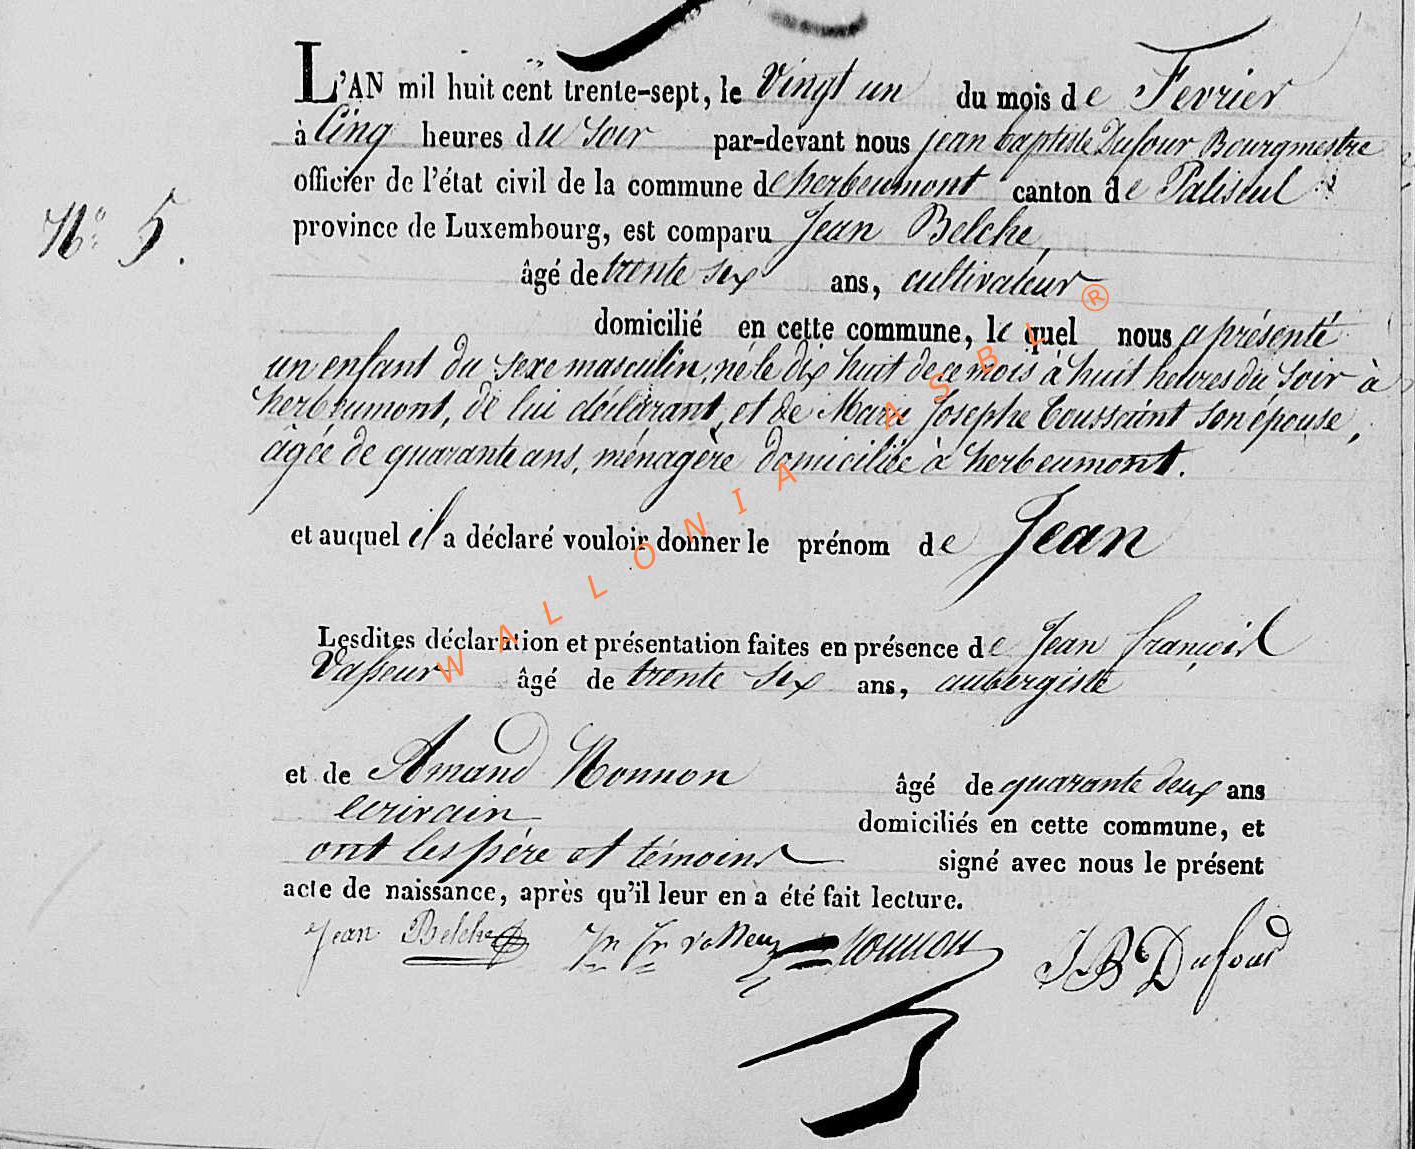 L'AN mil huit cent trente-sept, le vingt un du mois de Fevrier
à Cinq heures du soir par-devant nous jean baptiste Dufour Bourgmestre
officier de l'état civil de la commune de herbeumont canton de Paliseul
N.o 5.
province de Luxembourg, est comparu Jean Belche,
âgé de trente six ans, cultivateur
domicilié en cette commune, le quel nous a présenté
un enfant du sexe masculin, né le dix huit de ce mois à huit heures du soir à
herbeumont, de lui déclarant, et de Marie Josephe Toussaint son épouse,
âgée de quarante ans, ménagère domiciliée à herbeumont.
et auquel il a déclaré vouloir donner le prénom de Jean
Lesdites déclaration et présentation faites en présence de Jean françois
Vasseur âgé de trente six ans, aubergiste
et de Amand Nonnon âgé de quarante deux ans
ecrivain domiciliés en cette commune, et
ont les père et témoins signé avec nous le présent
acte de naissance, après qu'il leur en a été fait lecture.
Jean Belche Jn Fr Vasseur Nonnon JB Dufour
WALLONIA ASBL ®